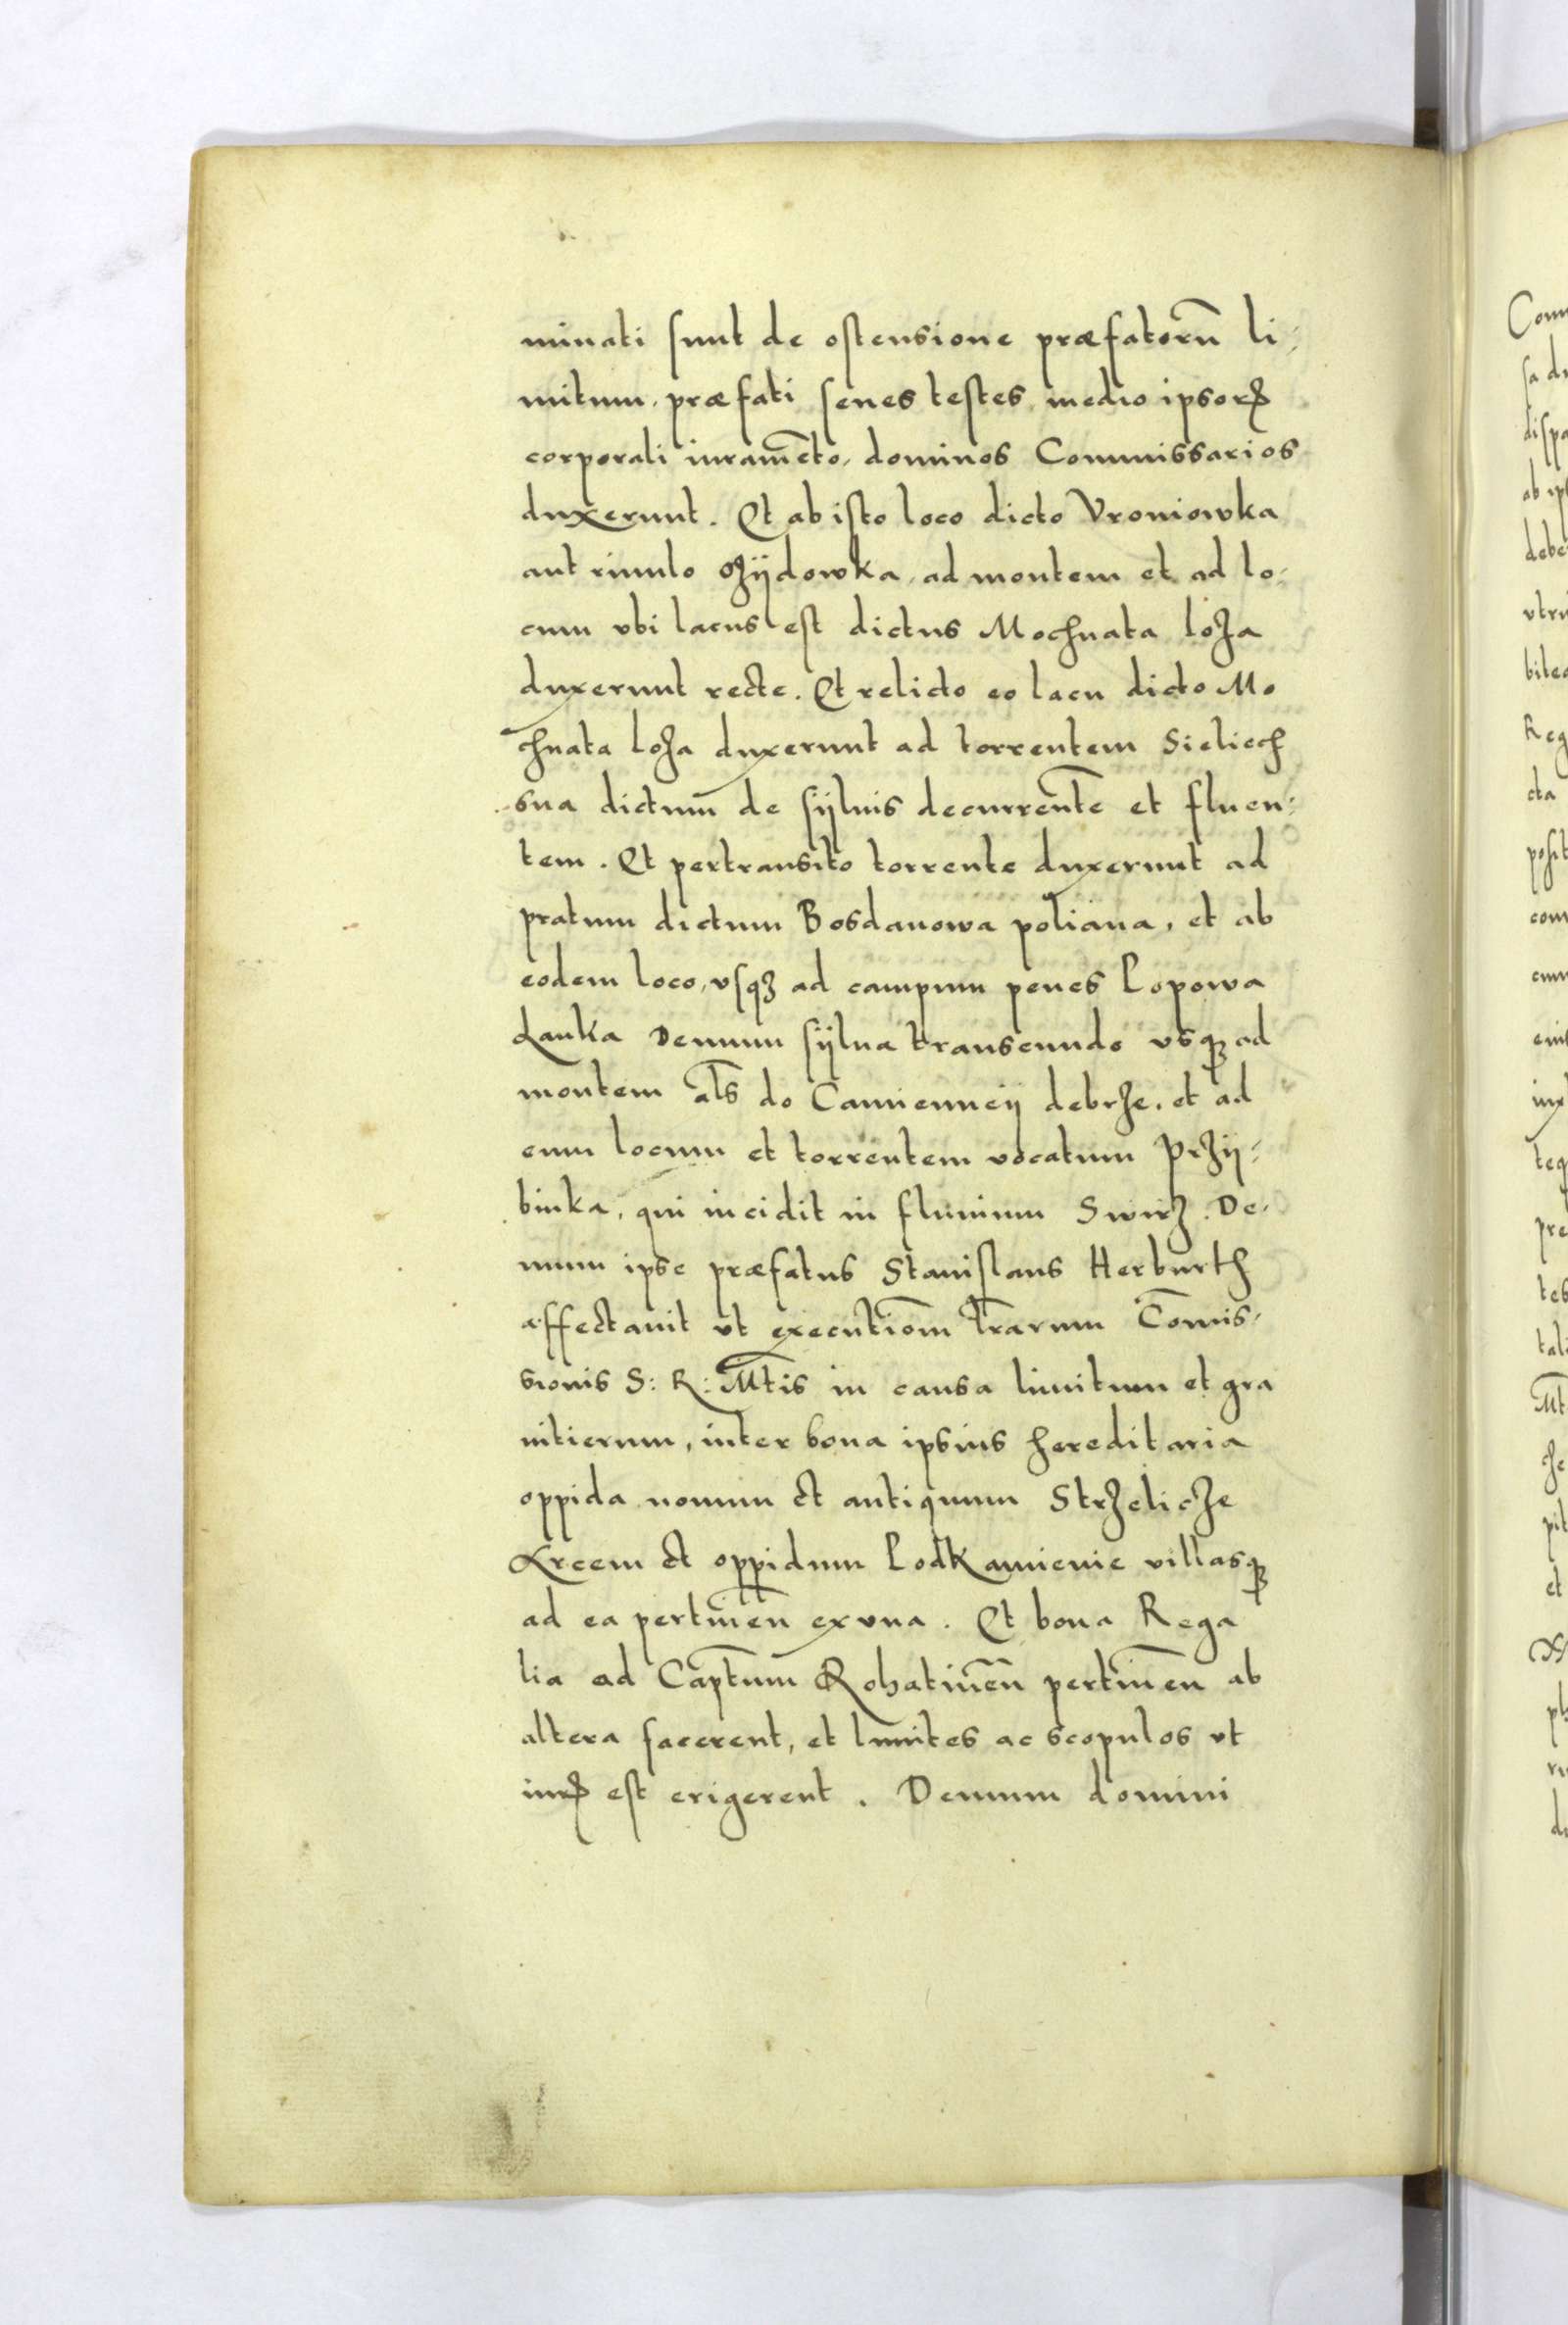 minati sunt de ostensione præfatorū li-
mitum, præfati senes testes, medio ipsorꝝ
corporali iuramēto, dominos Commissarios
duxerunt. Et ab isto loco dicto Vroniowka
aut riuulo Ozÿdowka, ad montem et ad lo-
cum vbi lacus est dictus Mochnata loza
duxerunt recte. Et relicto eo lacu dicto Mo
chnata loza duxerunt ad torrentem Sieliech
sna dictum̄ de sÿluis decurrent̄e et fluen-
tem. Et pertransito torrente duxerunt ad
pratum dictum Bosdanowa poliana, et ab
eodem loco, vsqꝫ ad campum penes Popowa
Lanka Demum sÿlua transeundo vsqꝫ ad
montem al̄s do Camienneÿ debrze, et ad
eum locum et torrentem vocatum Przÿ-
binka, qui incidit in fluuium Swirz. De-
mum ipse præfatus Stanislaus Herburth
affectauit vt executiōm l̄rarum Com̄is-
sionis S: R: Mt̄is in causa limitum et gra
nitierum, inter bona ipsius hereditaria
oppida nouum et antiquum Strzelicze
Arcem et oppidum Podkamienie villasqꝫ
ad ea pertin̄en̄ ex vna. Et bona Rega
lia ad Cap̄tum̄ Rohatinēn̄ pertin̄en ab
altera facerent, et limites ac scopulos vt
iurꝭ est erigerent. Demum domini
Com
sa d
dispa
ab ip
debe
vtri
bite
Reg
cta
posit
com
cum
eius
iux
teq
pre
tes
tali
Mt
ze
pit
et